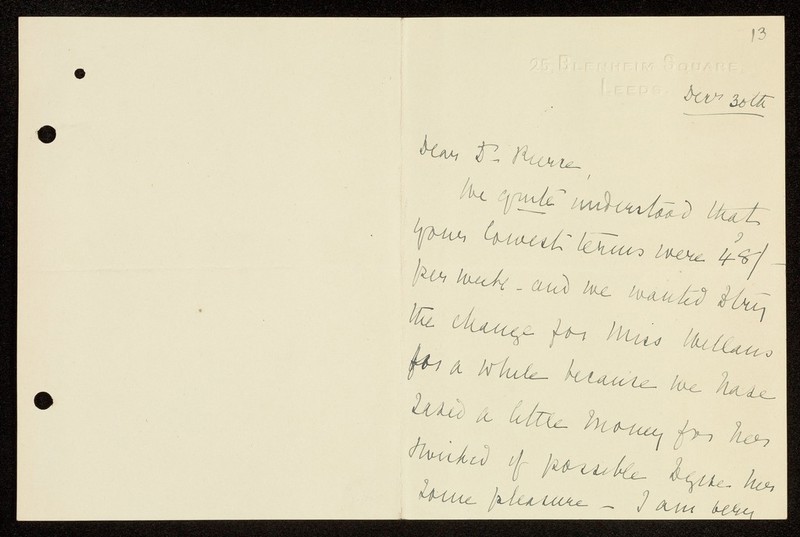 13
25, BLENHEIM SQUARE,
LEEDS.
Decr 30th
Dear Dr. Pierce,
We quite understood that
your lowest terms were 48/-
per week - and we wanted to try
the change for Miss Wellans
for a while because we have
saved a little money for her
& wished if possible to give her
some pleasure - I am very